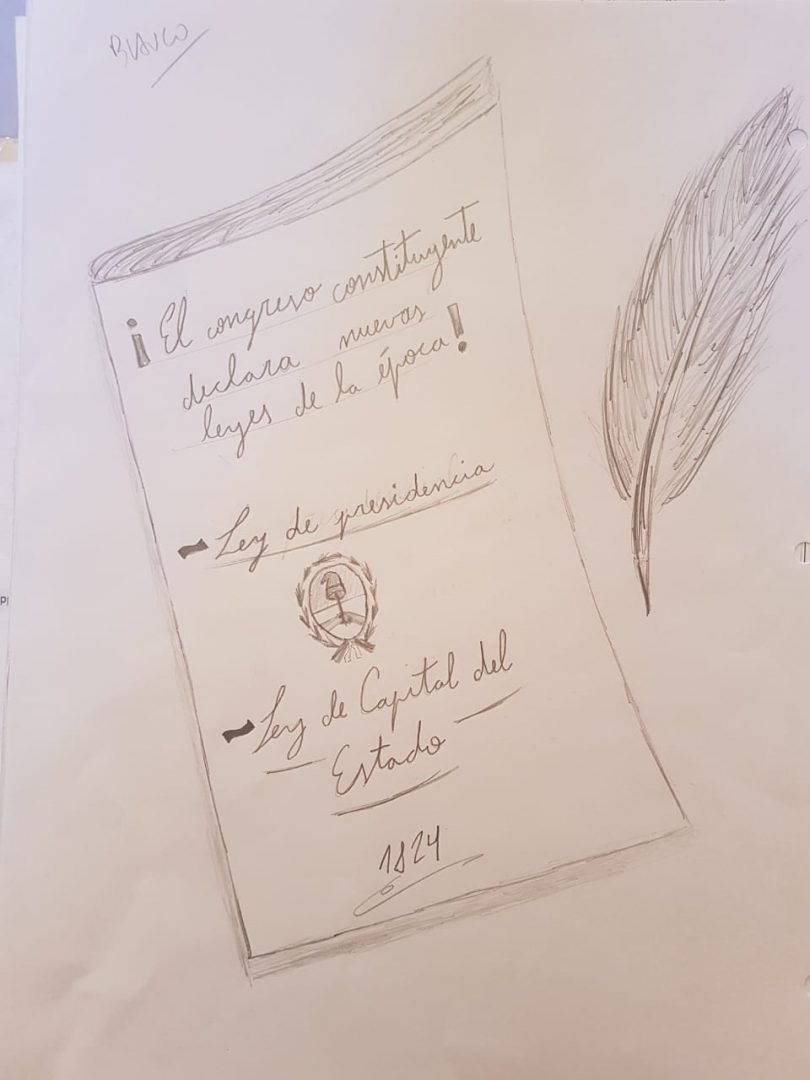 BLANCO
¡El congreso constituyente
declara nuevas
leyes de la época!
- Ley de presidencia
~ Ley de Capital del
Estado
1824